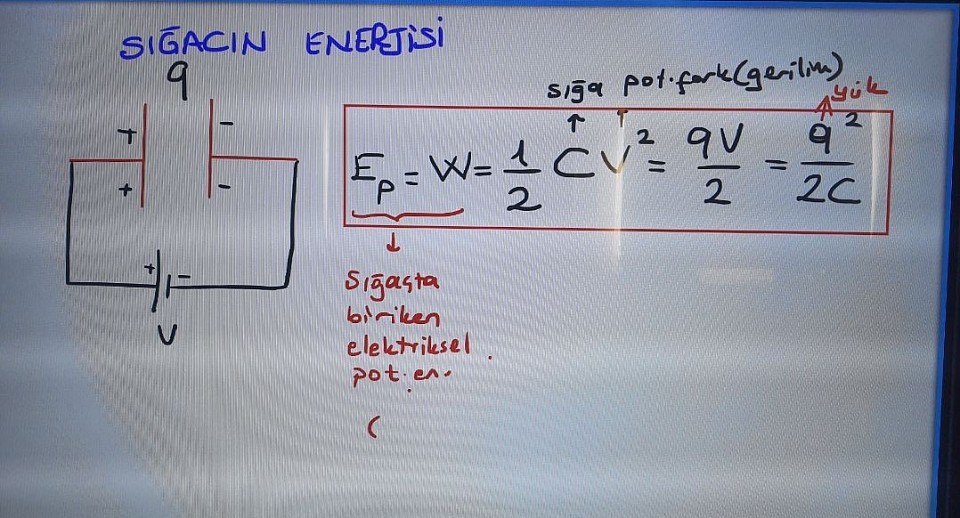 SIĞACIN ENERJİSİ
q
sığa pot.fark(gerilim)
yük
+ -
+ -
Ep = W = 1/2 CV² = qV/2 = q²/2C
+ -
V
Sığaçta
biriken
elektriksel
pot.en.
(